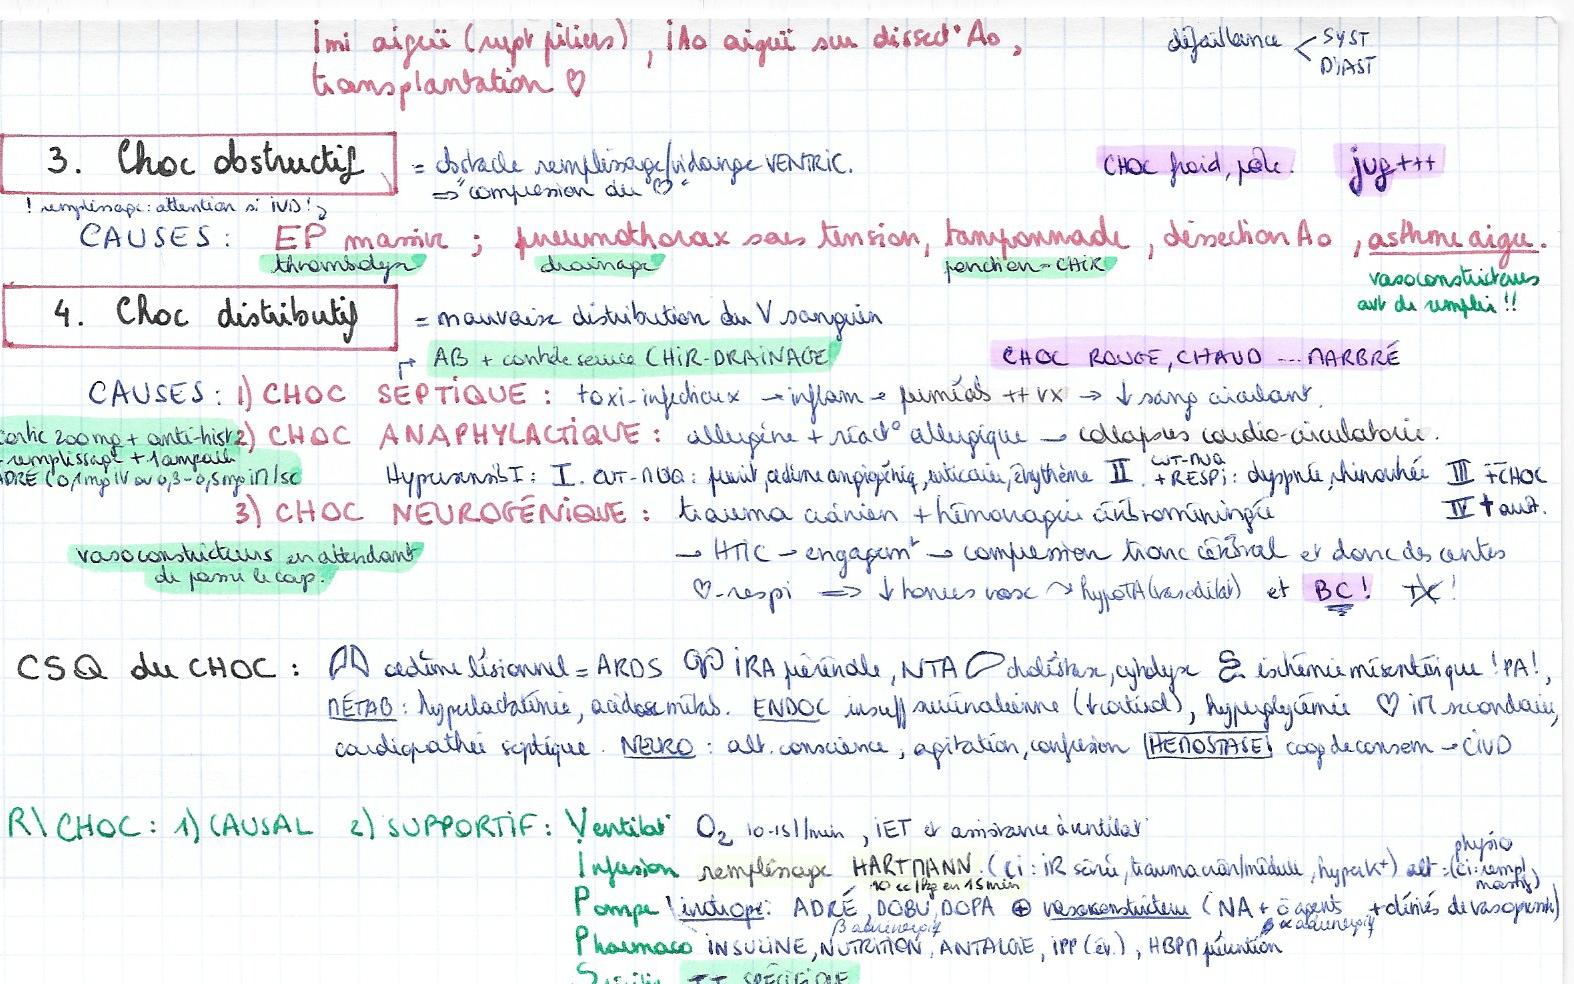 imi aiguë (rupt piliers), iAo aiguë sur dissect° Ao,
défaillance < SYST
DIAST
transplantation ♡
3. Choc obstructif = obstacle remplissage/vidange VENTRIC.
⇒ "compression du ♡"
CHOC froid, pâle. jug+++
! remplissage: attention si iVD!
CAUSES: EP massive ; pneumothorax sous tension, tamponnade, dissection Ao, asthme aigu.
thrombolyse drainage ponction-CHIR
vasoconstricteurs
avt de remplir !!
4. Choc distributif = mauvaise distribution du V sanguin
AB + contrôle source CHIR-DRAINAGE
CHOC ROUGE, CHAUD ... MARBRÉ
CAUSES: 1) CHOC SEPTIQUE: toxi-infectieux → inflam → ++ vx → ↓ sang circulant.
cortic 200mg + anti-hist
+ remplissage +
ADRE (0,1mg IV ou 0,3-0,5mg IM/sc
2) CHOC ANAPHYLACTIQUE: allergène + réact° allergique → collapsus cardio-circulatoire.
Hypersensib I: I. CUT-MUQ: prurit, œdème, urticaire, érythème II CUT-MUQ + RESPI: dyspnée, rhinorrhée III + CHOC
IV †
3) CHOC NEUROGÉNIQUE: trauma crânien + hémorragie
vasoconstricteurs en attendant
de passer le cap.
→ HTIC → engagemt → compression tronc cérébral et donc des centres
♡-respi ⇒ ↓ tonus vasc → hypoTA (vasodilat) et BC!
CSQ du CHOC: œdème lésionnel = ARDS IRA prérénale, NTA cholestase, cytolyse ischémie mésentérique !PA!,
MÉTAB: hyperlactatémie, acidose métab. ENDOC insuff surrénalienne (↓cortisol), hyperglycémie ♡ iM secondaire,
cardiopathie septique. NEURO: alt. conscience, agitation, confusion HEMOSTASE coag de consom → CIVD
R\ CHOC: 1) CAUSAL 2) SUPPORTIF: Ventilat° O₂ 10-15l/min, iET et assistance à ventilat°
Infusion remplissage HARTMANN. (ci: iR sévère, trauma crân/médull, hyperK⁺) alt: physio (ci: rempl massif)
10 cc/kg en 15min
Pompe \ inotrope: ADRÉ, DOBU, DOPA ⊕ vasoconstricteurs (NA + α agents + dérivés de vasopressine)
β adrénergiq α adrénergiq
Pharmaco INSULINE, NUTRITION, ANTALGIE, iPP (év.), HBPM prévention
TT SPÉCIFIQUE